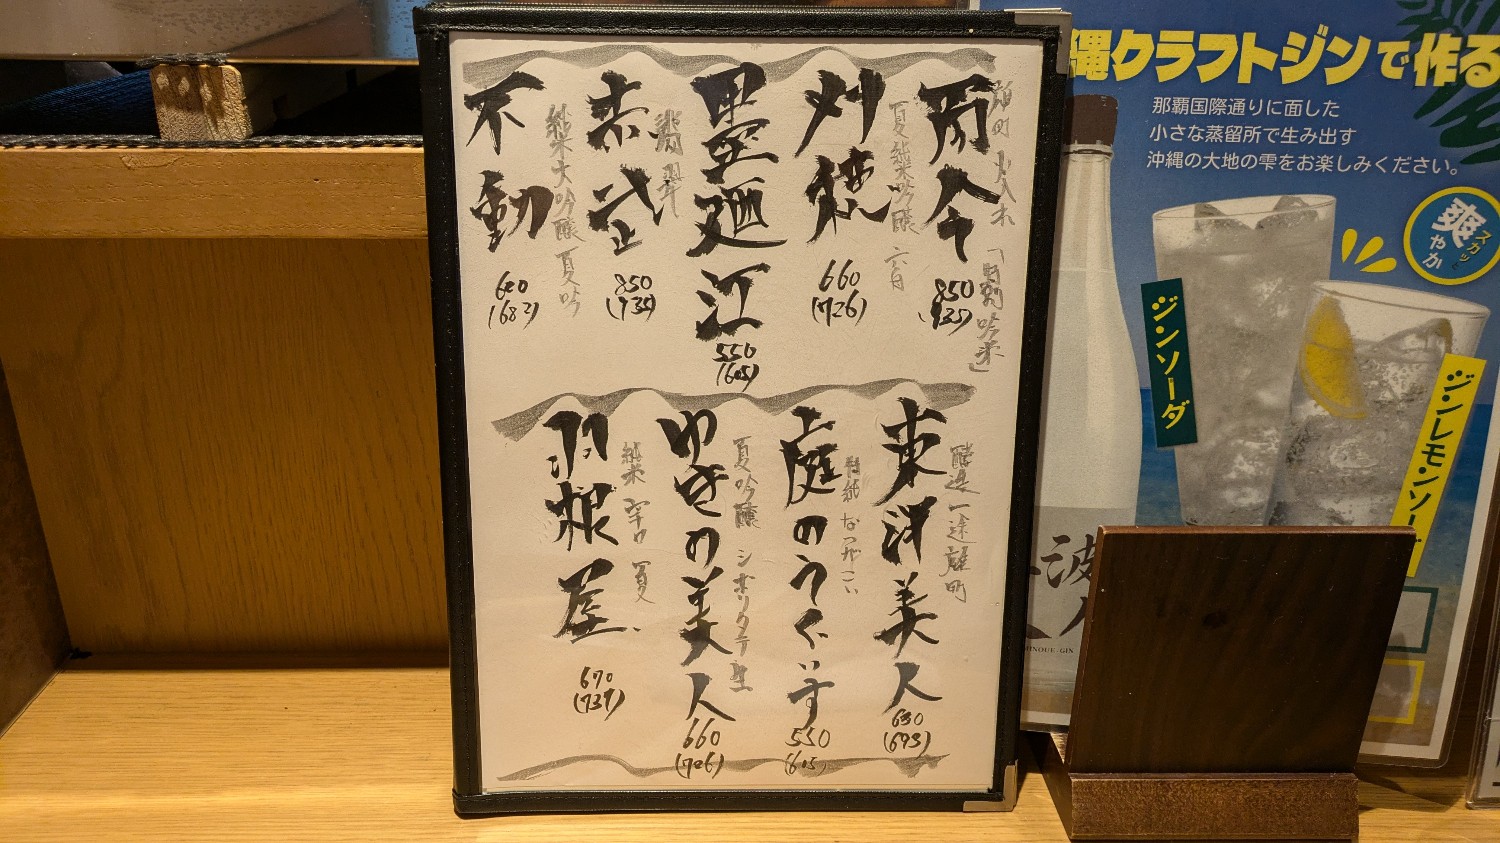 而今
雄町 火入れ
「特別吟米」
850
(935)
刈穂
夏純米吟醸 六舟
660
(726)
墨廼江
550
(605)
赤武
翡翠
850
(935)
不動
純米大吟醸 夏吟
620
(682)
東洋美人
醇道一途 雄町
630
(693)
庭のうぐいす
特純 なつがこい
550
(605)
ゆきの美人
夏吟醸 シボリタテ生
660
(726)
羽根屋
純米 辛口 夏
670
(737)
縄クラフトジンで作る
那覇国際通りに面した
小さな蒸留所で生み出す
沖縄の大地の雫をお楽しみください。
スカッと
爽やか
ジンソーダ
ジンレモンソー